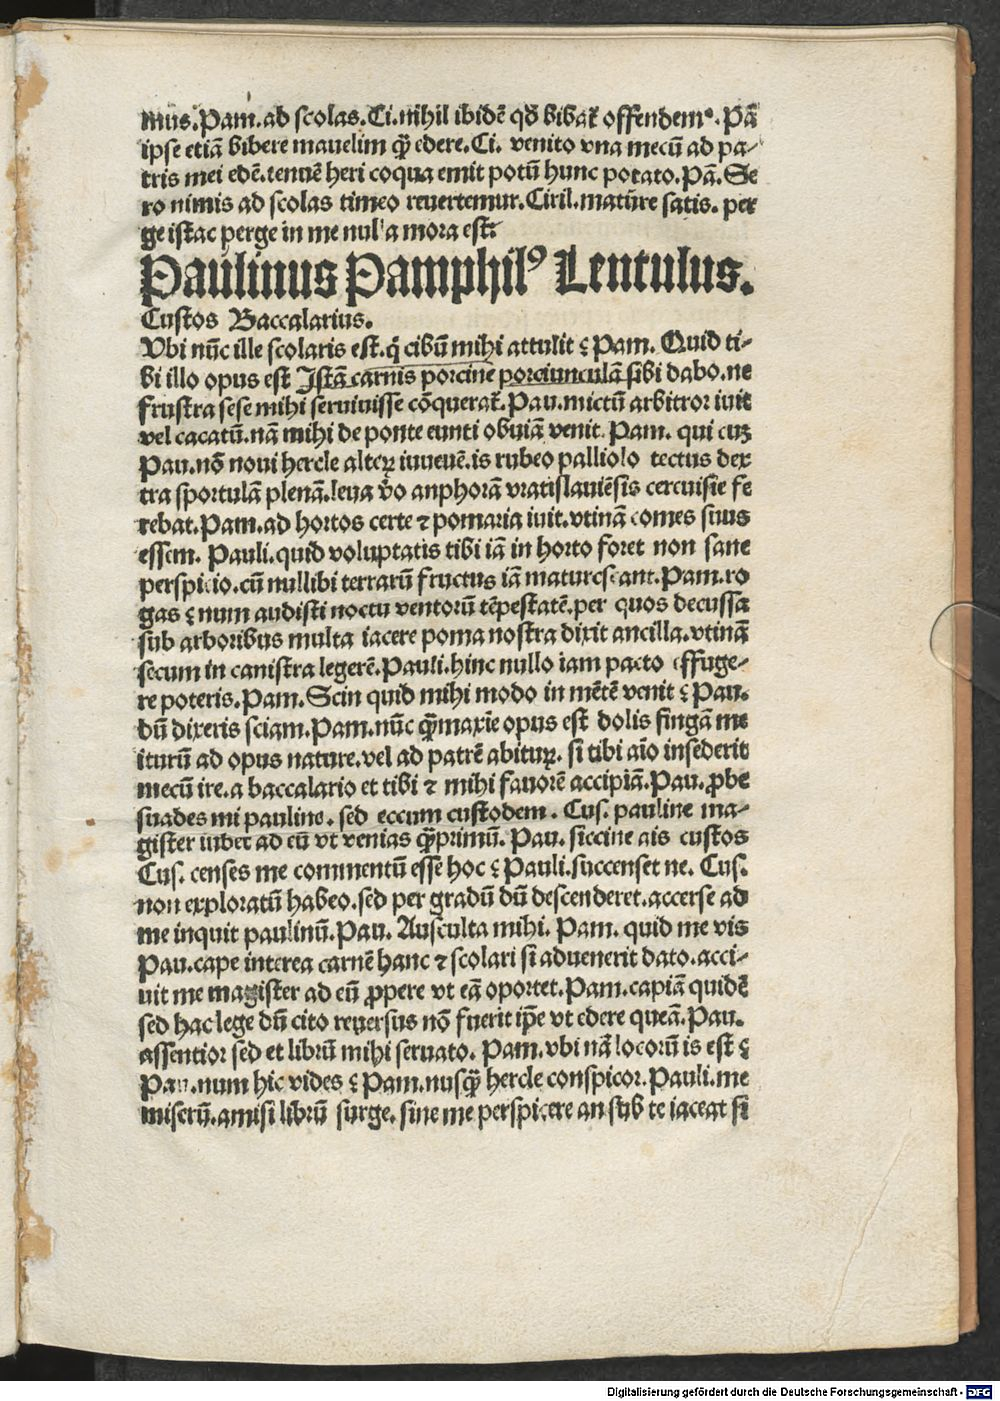 mus. Pam. ad scolas. Ci. nihil ibidē qđ bibat᷑ offendemꝰ. Pā
ipse etiā bibere mauelim q̄ꝫ edere. Ci. venito vna mecū ad pa⸗
tris mei edē. tenuē heri coqua emit potū hunc potato. Pā. Se
ro nimis ad scolas timeo reuertemur. Ciril. mature satis. per
ge istac perge in me nul'a mora est:
Paulinus Pamphilꝰ Lentulus.
Custos Baccalarius.
Vbi nūc ille scolaris est. q̇ cibū mihi attulit ⸮ Pam. Quid ti⸗
bi illo opus est Istā carnis porcine porciunculā sibi dabo. ne
frustra sese mihi seruiuisse cōquerat᷑. Pau. mictū arbitror iuit
vel cacatū. nā mihi de ponte eunti obuiā venit. Pam. qui cuꝫ
Pau. nō noui hercle alteꝝ iuuenē. is rubeo palliolo tectus dex
tra sportulā plenā. leua v̊o anphorā vratislauiēsis ceruisie fe
rebat. Pam. ad hortos certe ⁊ pomaria iuit. vtinā comes suus
essem. Pauli. quid voluptatis tibi iā in horto foret non sane
perspicio. cū nullibi terrarū fructus iā maturescant. Pam. ro
gas ⸮ num audisti noctu ventorū tēpestatē. per quos decussa
sub arboribus multa iacere poma nostra dixit ancilla. vtinā
secum in canistra legerē. Pauli. hinc nullo iam pacto effuge⸗
re poteris. Pam. Scin quid mihi modo in mētē venit ⸮ Pau.
dū dixeris sciam. Pam. nūc q̄ꝫmaxīe opus est dolis fingā me
iturū ad opus nature. vel ad patrē abituꝝ. si tibi aīo insederit
mecū ire. a baccalario et tibi ⁊ mihi fauorē accipiā. Pau. ꝓbe
suades mi pauline. sed eccum custodem. Cus. pauline ma⸗
gister iubet ad eū vt venias q̄ꝫprimū. Pau. siccine ais custos
Cus. censes me commentū esse hoc ⸮ Pauli. succenset ne. Cus.
non exploratū habeo. sed per gradū dū descenderet. accerse ad
me inquit paulinū. Pau. Ausculta mihi. Pam. quid me vis
Pau. cape interea carnē hanc ⁊ scolari si aduenerit dato. acci⸗
uit me magister ad eū ꝓpere vt eā oportet. Pam. capiā quidē
sed hac lege dū cito reuersus nō fuerit ip̄e vt edere queā. Pau.
assentior sed et librū mihi seruato. Pam. vbi nā locorū is est ⸮
Pau. num hic vides ⸮ Pam. nusq̄ꝫ hercle conspicor. Pauli. me
miserū. amisi librū surge. sine me perspicere an sub te iaceat si
Digitalisierung gefördert durch die Deutsche Forschungsgemeinschaft - DFG